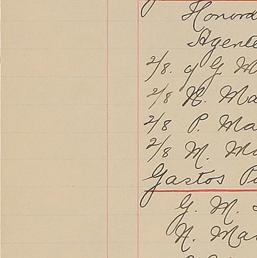 Honord
Agente
2/8. y G M
2/8 N. Ma
2/8 P. Ma
2/8 M. Ma
Gastos Pu
G. M.
N. Mar